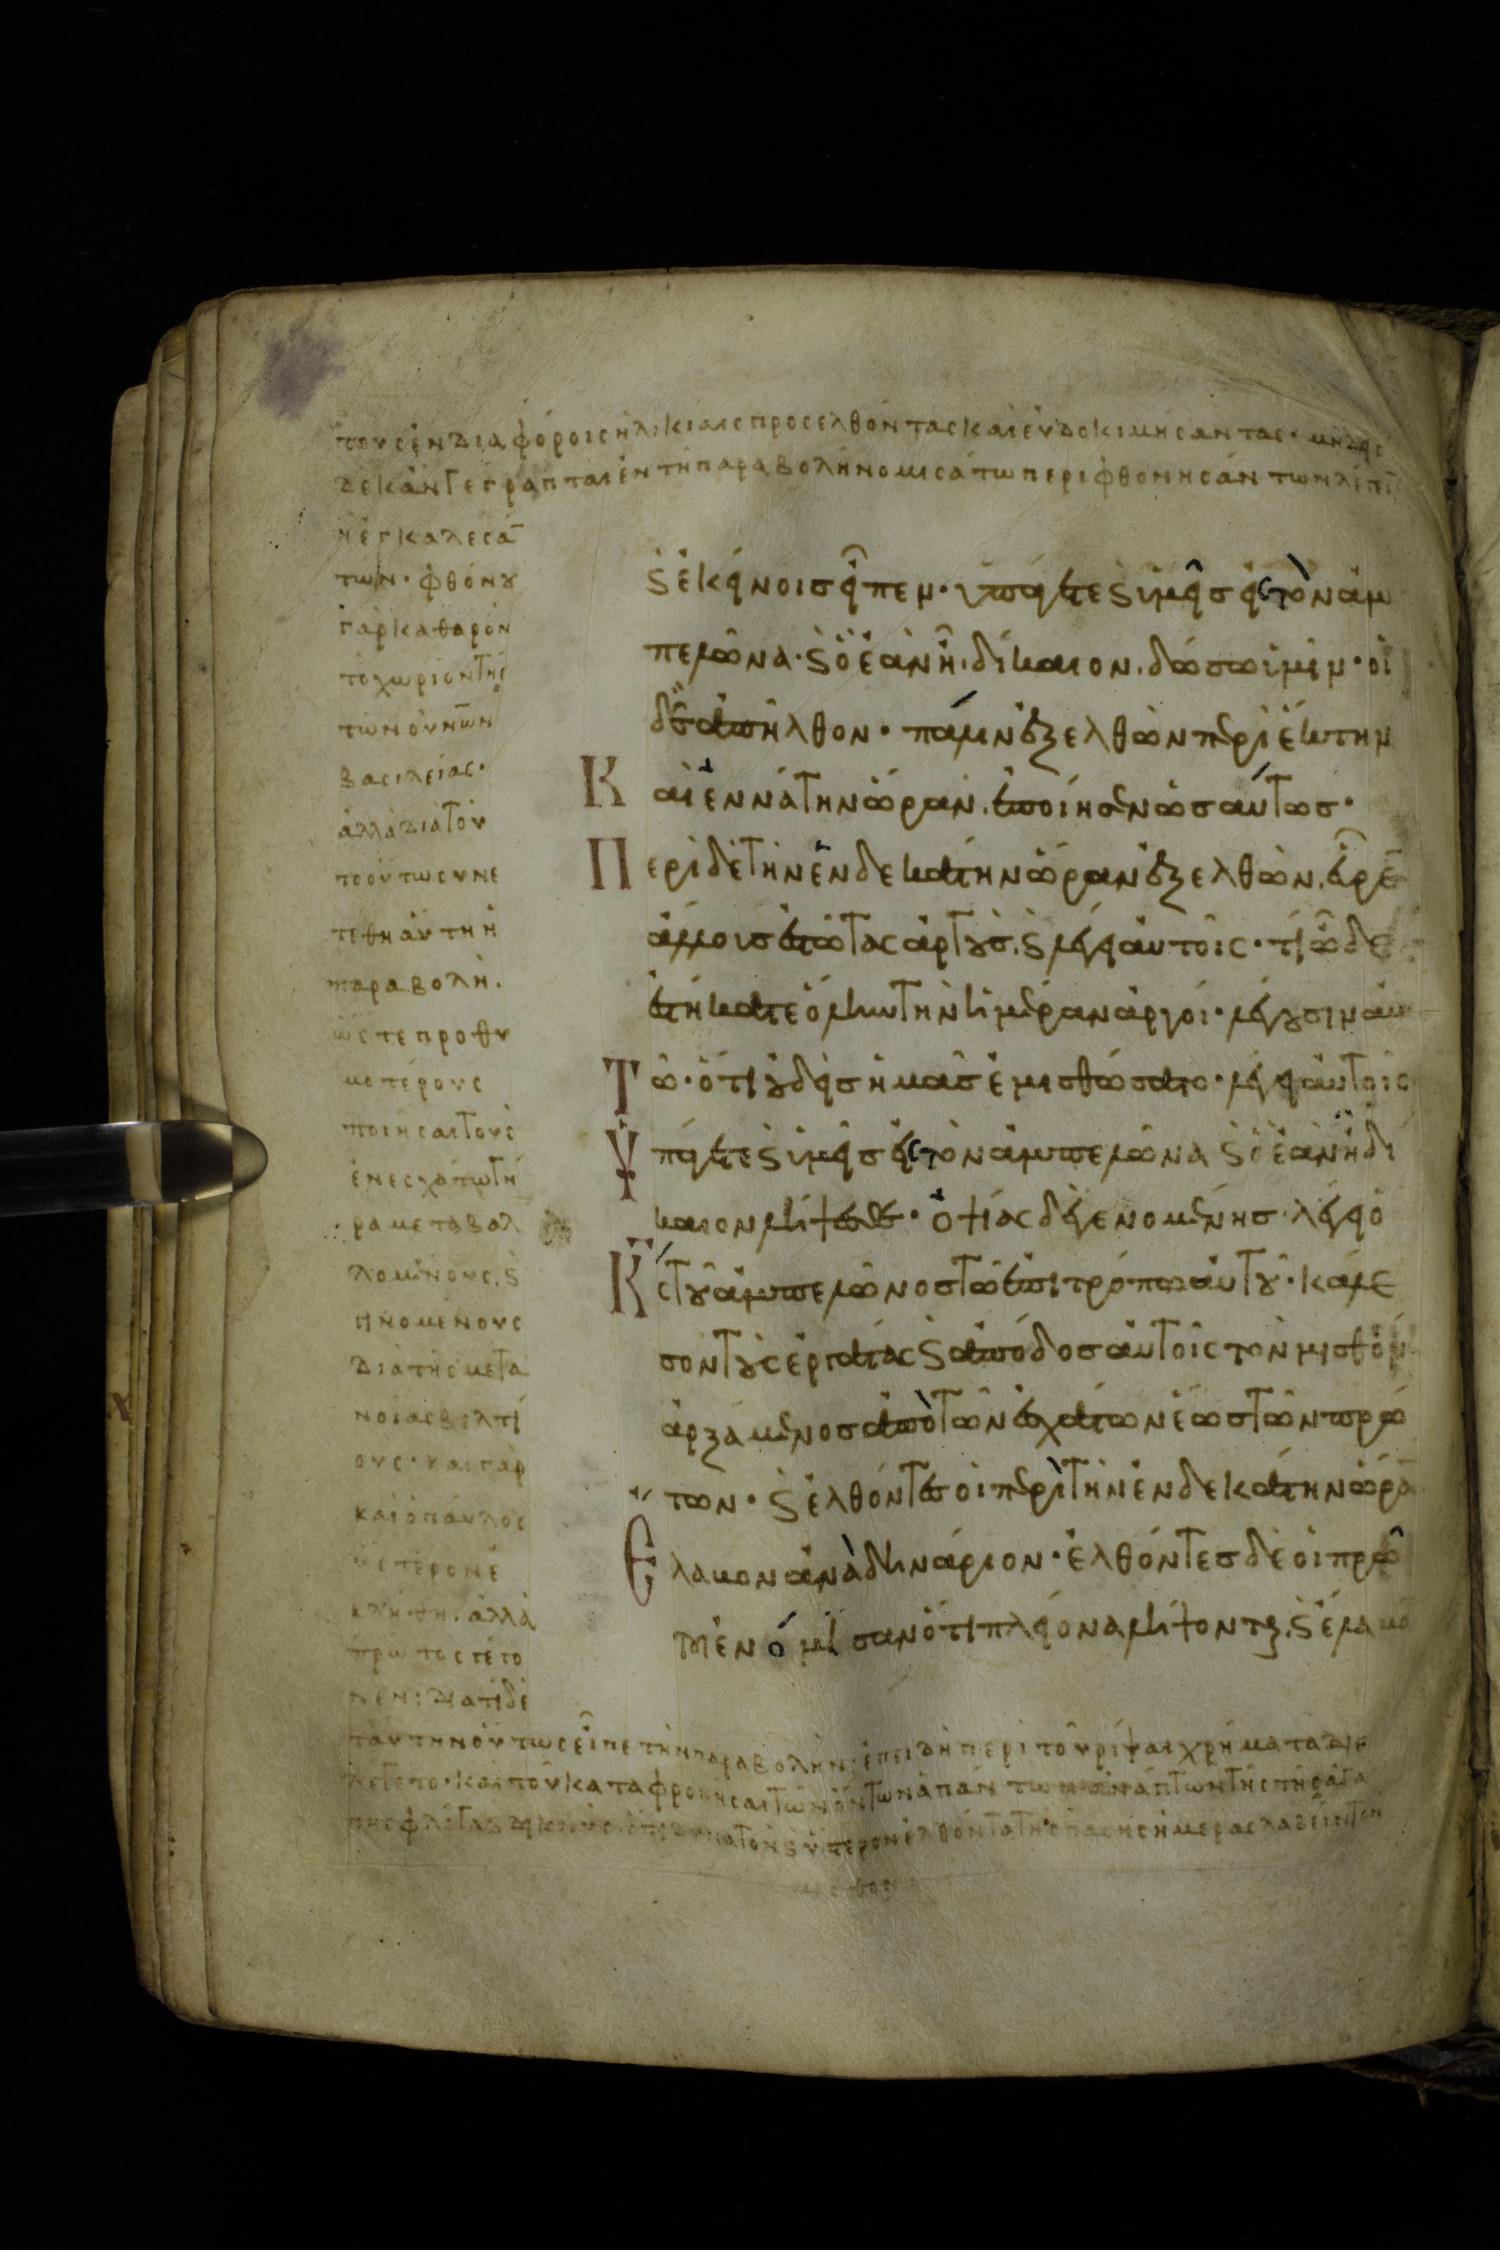 τους ἐν διαφόροις ἡλικίαις προσελθόντας καὶ εὐδοκιμήσαντας · μηδεὶς
δὲ κἀν γέγραπται ἐν τῆ παραβολῆ νομισάτω περὶ φθονησάντων
ἢ ἐγκαλεσά
των · φθόνου
γὰρ καθαρὸν
τὸ χωρίον τῆς
τῶν οὐνῶν
βασιλείας ·
ἀλλὰ διὰ τοῦ
το οὕτω συνε
τέθη αὕτη ἡ
παραβολή.
ὥστε προθυ
μοτέρους
ποιῆσαι τοὺς
ἐν ἐσχάτω γή
ρα μεταβαλ
λομένους, ϗ
γινομένους
διὰ τῆς μετα
νοίας βελτί
ους · καὶ γὰρ
καὶ ὁ παῦλος
ὕστερον ἐ
κλήθη. ἀλλὰ
πρῶτος γέγο
νεν : διατί δὲ
ϗ ἐκείνοις εἶπεν · ὑπάγετε ϗ ὑμεῖς εἰς τὸν ἀμ
πελῶνα · ϗ ὃ ἐὰν ῆ δίκαιον. δώσω ὑμῖν · οἱ
δὲ ἀπῆλθον · πάλιν ἐξελθὼν περὶ ἕκτην
Καὶ ἐννάτην ὥραν. ἐποίησεν ὡσαύτως ·
Περὶ δὲ τὴν ἑνδεκάτην ὥραν ἐξελθὼν. εὗρεν
ἄλλους ἑστῶτας ἀργούς. ϗ λέγει αὐτοῖς · τί ὧδε
ἑστήκατε ὅλην τὴν ἡμέραν ἀργοί · λέγουσιν αὐ
Τῶ · ὅτι οὐδεὶς ἡμᾶς ἐμισθώσατο · λέγει αὐτοῖς
Ὑπάγετε ϗ ὑμεῖς εἰς τὸν ἀμπελῶνα ϗ ὃ ἐὰν ῆ δί
καιον λήψεσθε · ὀψίας δὲ γενομένης · λέγει ὁ
Κς τοῦ ἀμπελῶνος τῶ ἐπιτρόπω αὐτοῦ · κάλε
σον τοὺς ἐργάτας ϗ ἀπόδος αὐτοῖς τὸν μισθὸν
ἀρξάμενος ἀπὸ τῶν ἐσχάτων ἕως τῶν πρώ
των · ϗ ἐλθόντες οἱ περὶ τὴν ἑνδεκάτην ὥραν
Ἔλαβον ἀνὰ δηνάριον · ἐλθόντες δὲ οἱ πρῶ
τοι ἐνόμισαν ὅτι πλείονα λήψονται. ϗ ἔλαβον
ταύτην οὕτως εἶπε τὴν παραβολὴν · ἐπειδὴ περὶ τοῦ ρίψαι χρήματα διε
λέγετο · καὶ τοῦ καταφρονῆσαι τῶν ὄντων ἁπάντων
ὕστερον ἐλθόντα τῆς πάσης ἡμέρας λαβεῖν τὸν
μισθόν